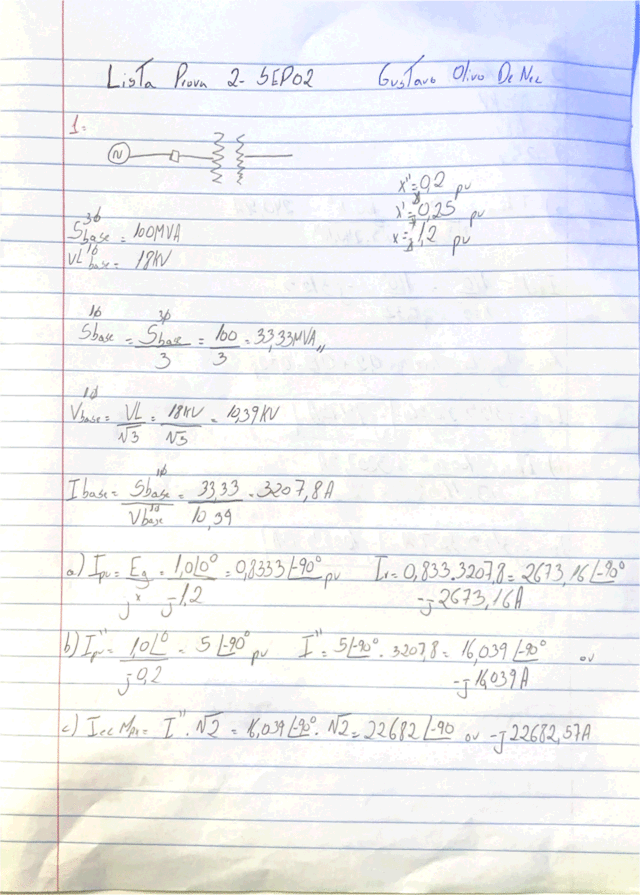 Lista Prova 2- SEP02 Gustavo Olivo De Nez
1-
N
x"g = 0,2 pu
x'g = 0,25 pu
xg = 1,2 pu
S3ϕbase = 100MVA
VL base = 18KV
S1ϕbase = S3ϕbase/3 = 100/3 = 33,33MVA,,
V1ϕbase = VL/√3 = 18KV/√3 = 10,39KV
Ibase = S1ϕbase/V1ϕbase = 33,33/10,39 = 3207,8A
a) Ipu = Eg/jx = 1,0∠0°/j1,2 = 0,8333∠-90° pu Ir = 0,833.3207,8 = 2673,16∠-90°
-j2673,16A
b) I"pu = 1,0∠0°/j0,2 = 5∠-90° pu I" = 5∠-90°.3207,8 = 16,039∠-90° ou
-j16,039A
c) Icc = I".√2 = 16,039∠-90°.√2 = 22682∠-90 ou -j22682,57A